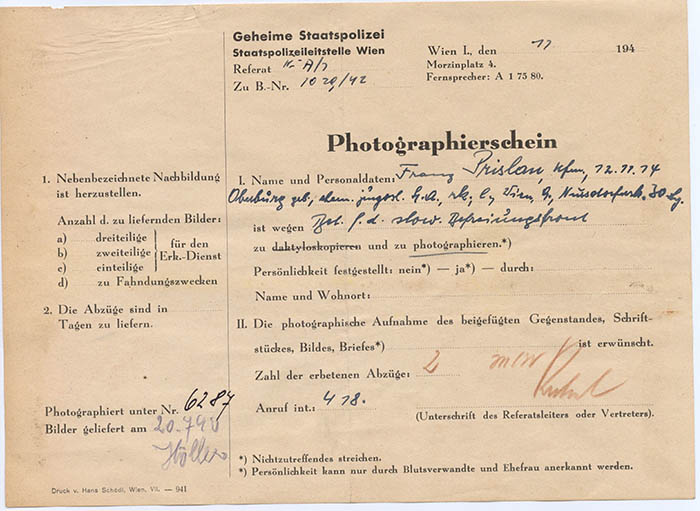 Geheime Staatspolizei
Staatspolizeileitstelle Wien
Referat
Zu B.-Nr. 1029/42
Wien I., den 194
Morzinplatz 4.
Fernsprecher: A 1 75 80.
Photographierschein
1. Nebenbezeichnete Nachbildung
ist herzustellen.
Anzahl d. zu liefernden Bilder:
a) dreiteilige
b) zweiteilige
c) einteilige
für den
Erk.-Dienst
d) zu Fahndungszwecken
2. Die Abzüge sind in
Tagen zu liefern.
Photographiert unter Nr. 6287
Bilder geliefert am
I. Name und Personaldaten: Franz Prislan, Kfm, 12.11.14
Oberburg geb., ehem. jugosl. S.A., rk, l., Wien, Nussdorferstr. 30
ist wegen Bet. f. d. slow. Befreiungsfront
zu daktyloskopieren und zu photographieren.*)
Persönlichkeit festgestellt: nein*) — ja*) — durch:
Name und Wohnort:
II. Die photographische Aufnahme des beigefügten Gegenstandes, Schrift-
stückes, Bildes, Briefes*) ist erwünscht.
Zahl der erbetenen Abzüge: 2
Anruf int.: 418.
(Unterschrift des Referatsleiters oder Vertreters).
*) Nichtzutreffendes streichen.
*) Persönlichkeit kann nur durch Blutsverwandte und Ehefrau anerkannt werden.
Druck v. Hans Schödl, Wien, VII. — 941